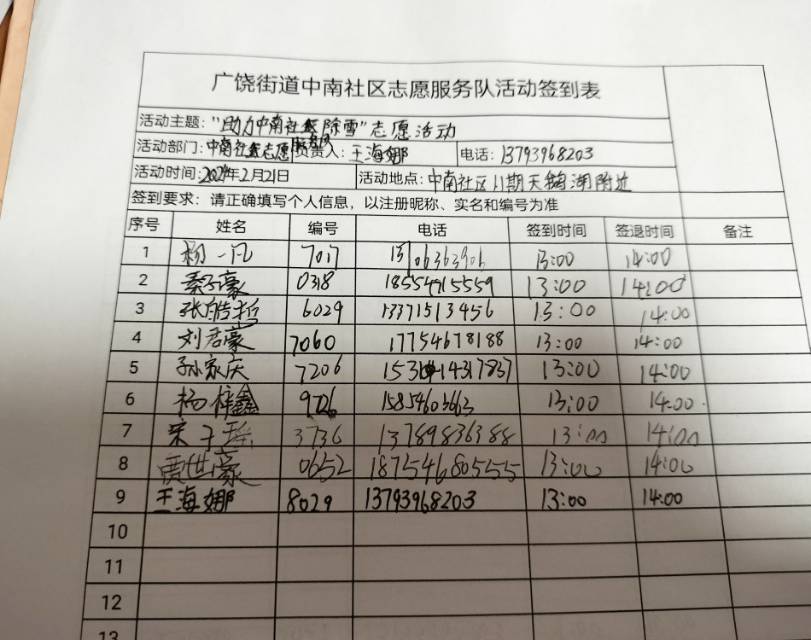 广饶街道中南社区志愿服务队活动签到表
活动主题："助力中南社区除雪"志愿活动
活动部门：中南社区志愿服务队 负责人：王海娜 电话：13793968203
活动时间：2024年2月21日 活动地点：中南社区11期天鹅湖附近
签到要求：请正确填写个人信息，以注册昵称、实名和编号为准
序号 姓名 编号 电话 签到时间 签退时间 备注
1 杨一凡 7017 13:00 14:00
2 秦子豪 0318 18554715559 13:00 14:00
3 张皓哲 6029 13371513456 13:00 14:00
4 刘君豪 7060 17754678188 13:00 14:00
5 孙家庆 7206 13:00 14:00
6 杨梓鑫 9726 15854603663 13:00 14:00
7 宋子瑶 3736 13789836388 13:00 14:00
8 贾世豪 0652 18754680555 13:00 14:00
9 王海娜 8029 13793968203 13:00 14:00
10
11
12
13